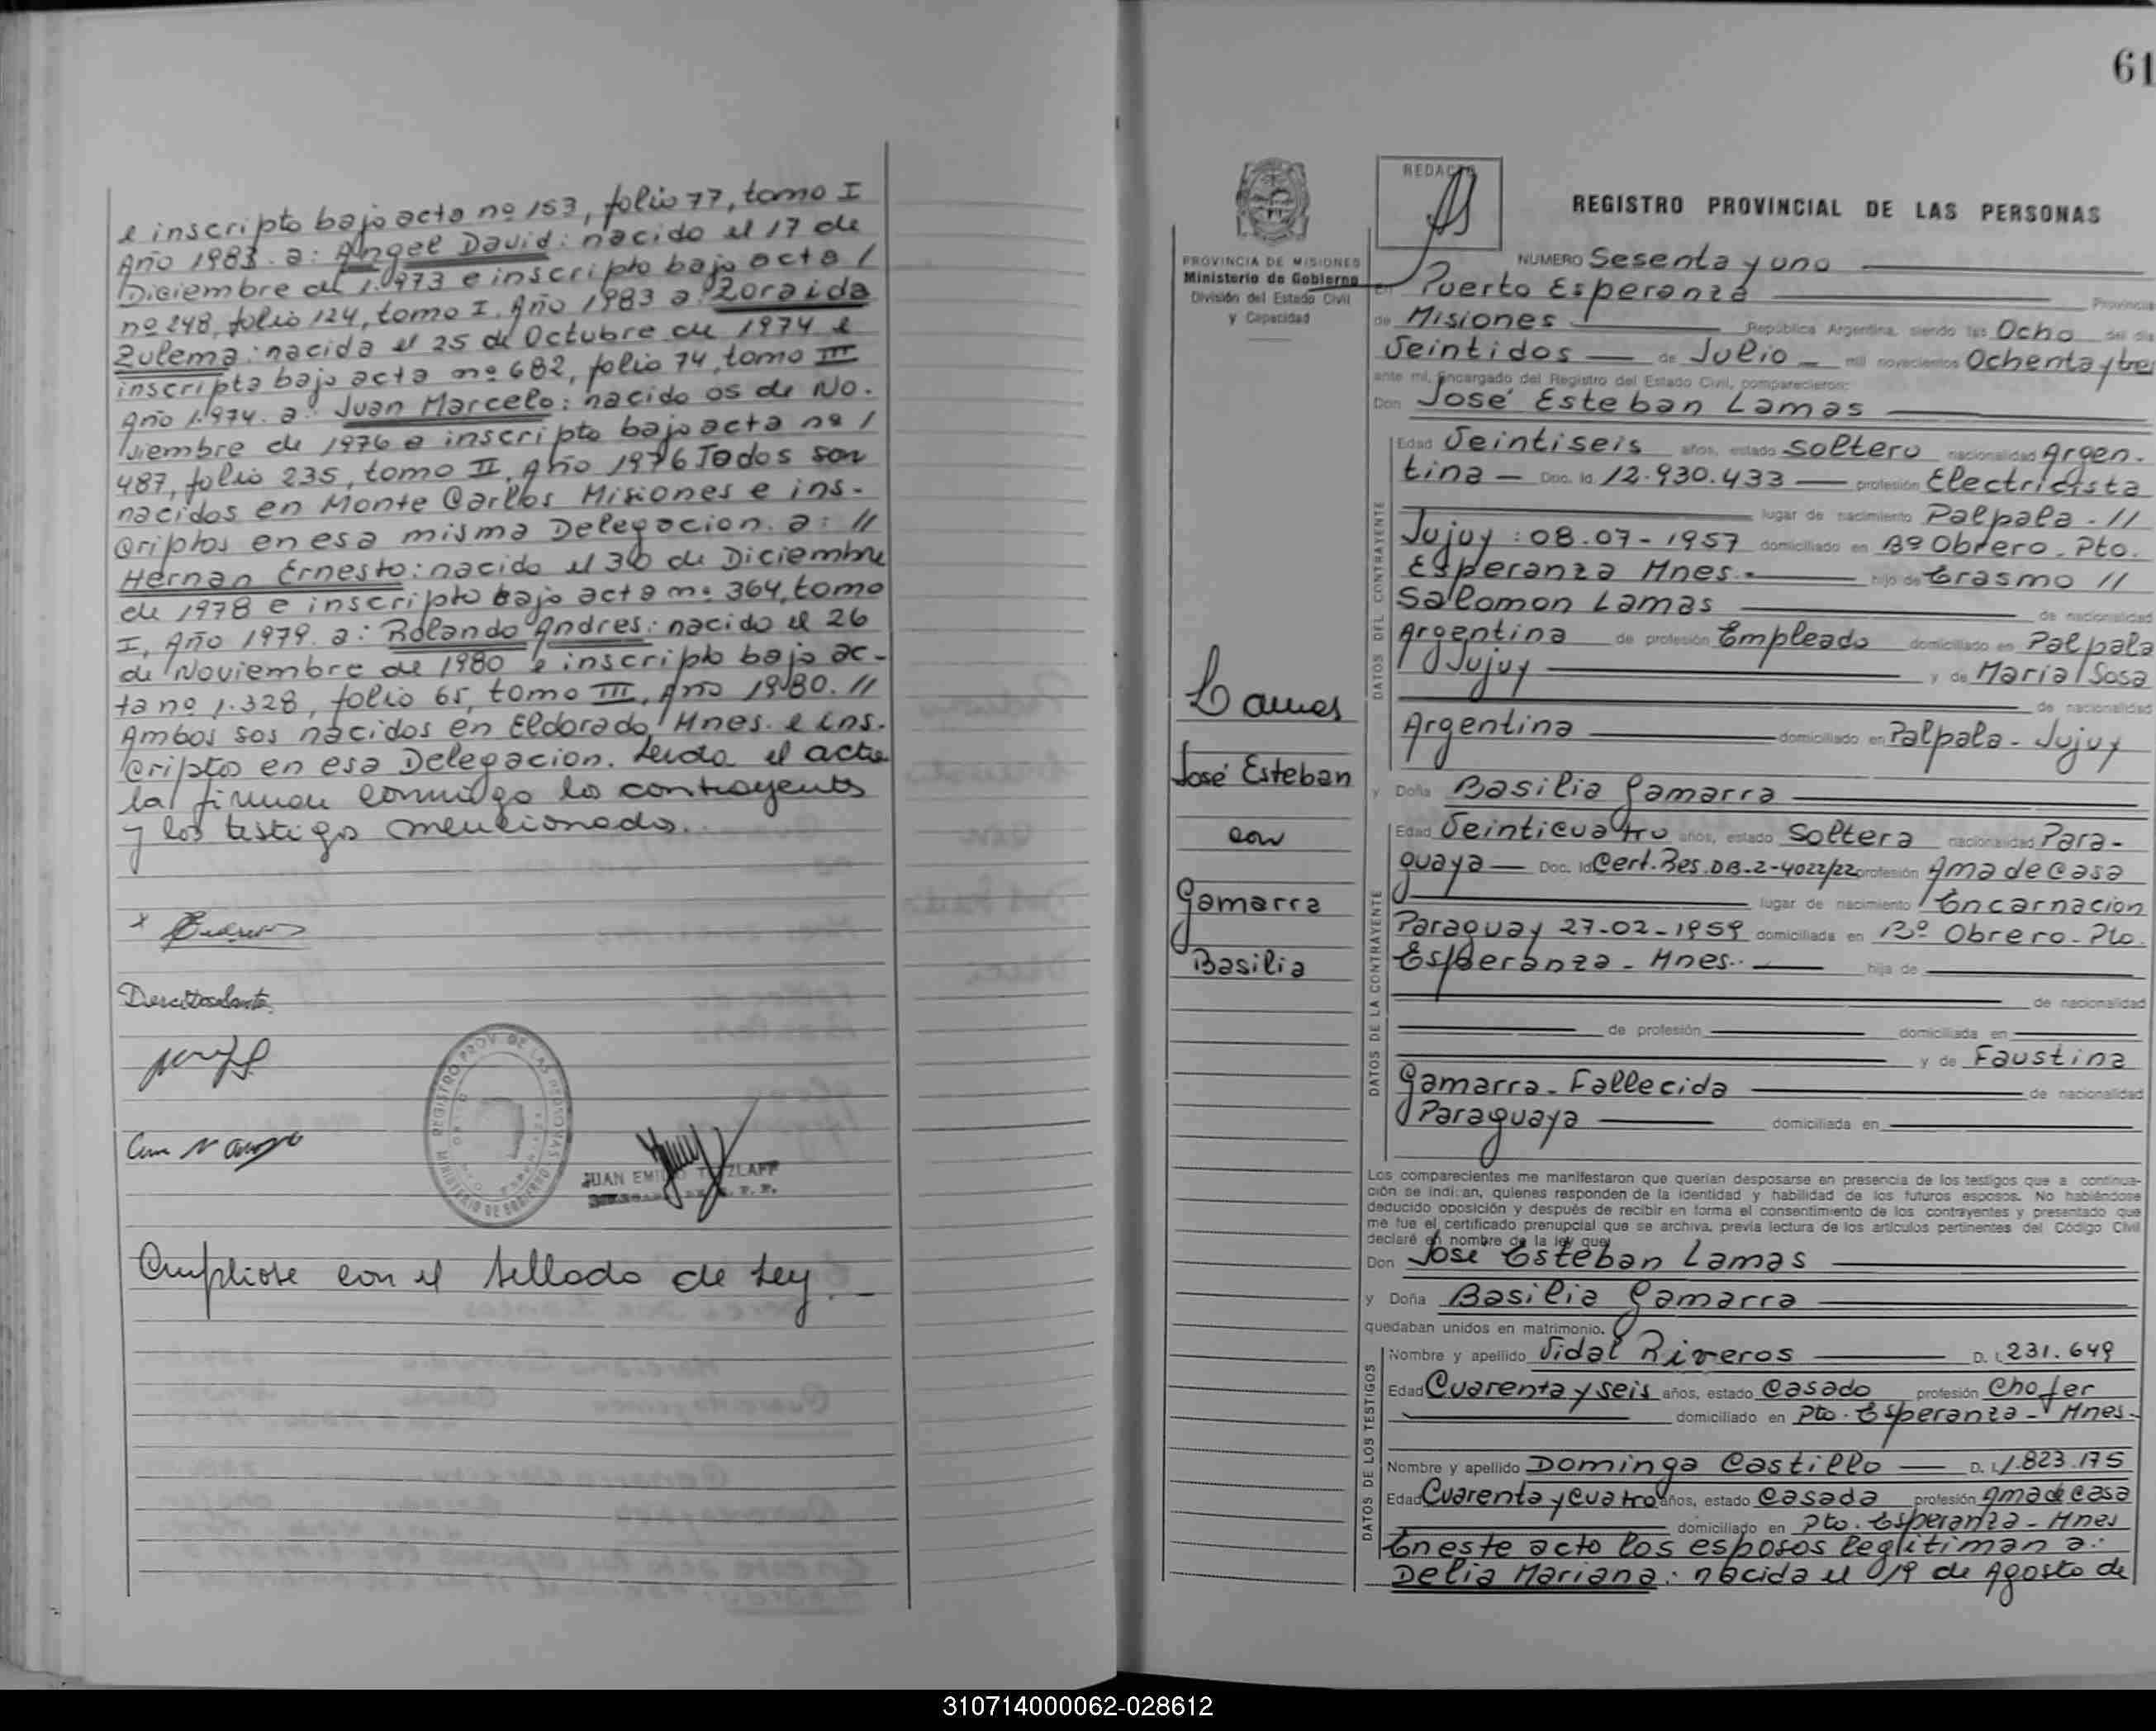 e inscripto bajo acta nº 153, folio 77, tomo I
Año 1983. a: Angel David: nacido el 17 de
Diciembre de 1.973 e inscripto bajo acta /
nº 248, folio 124, tomo I. Año 1983 a: Zoraida
Zulema: nacida el 25 de Octubre de 1974 e
inscripta bajo acta nº 682, folio 74, tomo III
Año 1.974. a: Juan Marcelo: nacido 05 de No-
viembre de 1976 e inscripto bajo acta nº /
487, folio 235, tomo II, Año 1976 Todos son
nacidos en Monte Carlos Misiones e ins-
criptos en esa misma Delegacion. a: //
Hernan Ernesto: nacido el 30 de Diciembre
de 1978 e inscripto bajo acta nº 364, tomo
I, Año 1979. a: Rolando Andres: nacido el 26
de Noviembre de 1980 e inscripto bajo ac-
ta nº 1.328, folio 65, tomo III, Año 1980. //
Ambos sos nacidos en Eldorado, Mnes. e ins-
criptos en esa Delegacion. Leida el acta
la firman conmigo los contrayentes
y los testigos mencionados.
REGISTRO PROV. DE LAS PERSONAS
MINISTERIO DE GOBIERNO
JUAN EMI
Cumpliose con el sellado de Ley.-
61
REDACTO
REGISTRO PROVINCIAL DE LAS PERSONAS
PROVINCIA DE MISIONES
Ministerio de Gobierno
División del Estado Civil
y Capacidad
NUMERO Sesenta y uno
En Puerto Esperanza Provincia
de Misiones República Argentina, siendo las Ocho del día
Veintidos de Julio mil novecientos Ochenta y tres
ante mí, Encargado del Registro del Estado Civil, comparecieron:
Don José Esteban Lamas
DATOS DEL CONTRAYENTE
Edad Veintiseis años, estado Soltero nacionalidad Argen-
tina — Doc. Id. 12.930.433 — profesión Electricista
lugar de nacimiento Palpala - //
Jujuy : 08-07-1957 domiciliado en Bº Obrero - Pto.
Esperanza Mnes. - hijo de Erasmo //
Salomon Lamas de nacionalidad
Argentina de profesión Empleado domiciliado en Palpala
Jujuy y de Maria Sosa
de nacionalidad
Argentina domiciliado en Palpala - Jujuy
Lamas
José Esteban
con
Gamarra
Basilia
y Doña Basilia Gamarra
DATOS DE LA CONTRAYENTE
Edad Veinticuatro años, estado Soltera nacionalidad Para-
guaya — Doc. Id Cert. Res. DB-2-4022/22 profesión Ama de casa
lugar de nacimiento Encarnacion
Paraguay 27-02-1959 domiciliada en Bº Obrero - Pto.
Esperanza - Mnes. hija de
de nacionalidad
de profesión domiciliada en
y de Faustina
Gamarra - Fallecida de nacionalidad
Paraguaya domiciliada en
Los comparecientes me manifestaron que querían desposarse en presencia de los testigos que a continua-
ción se indican, quienes responden de la identidad y habilidad de los futuros esposos. No habiéndose
deducido oposición y después de recibir en forma el consentimiento de los contrayentes y presentado que
me fue el certificado prenupcial que se archiva, previa lectura de los artículos pertinentes del Código Civil
declaré en nombre de la ley que
Don José Esteban Lamas
y Doña Basilia Gamarra
quedaban unidos en matrimonio.
DATOS DE LOS TESTIGOS
Nombre y apellido Vidal Riveros D. I. 231.649
Edad Cuarenta y seis años, estado Casado profesión Chofer
domiciliado en Pto. Esperanza - Mnes.
Nombre y apellido Dominga Castillo D. I. 1.823.175
Edad Cuarenta y cuatro años, estado Casada profesión Ama de casa
domiciliado en Pto. Esperanza - Mnes
En este acto los esposos legitiman a:
Delia Mariana: nacida el 19 de Agosto de
310714000062-028612